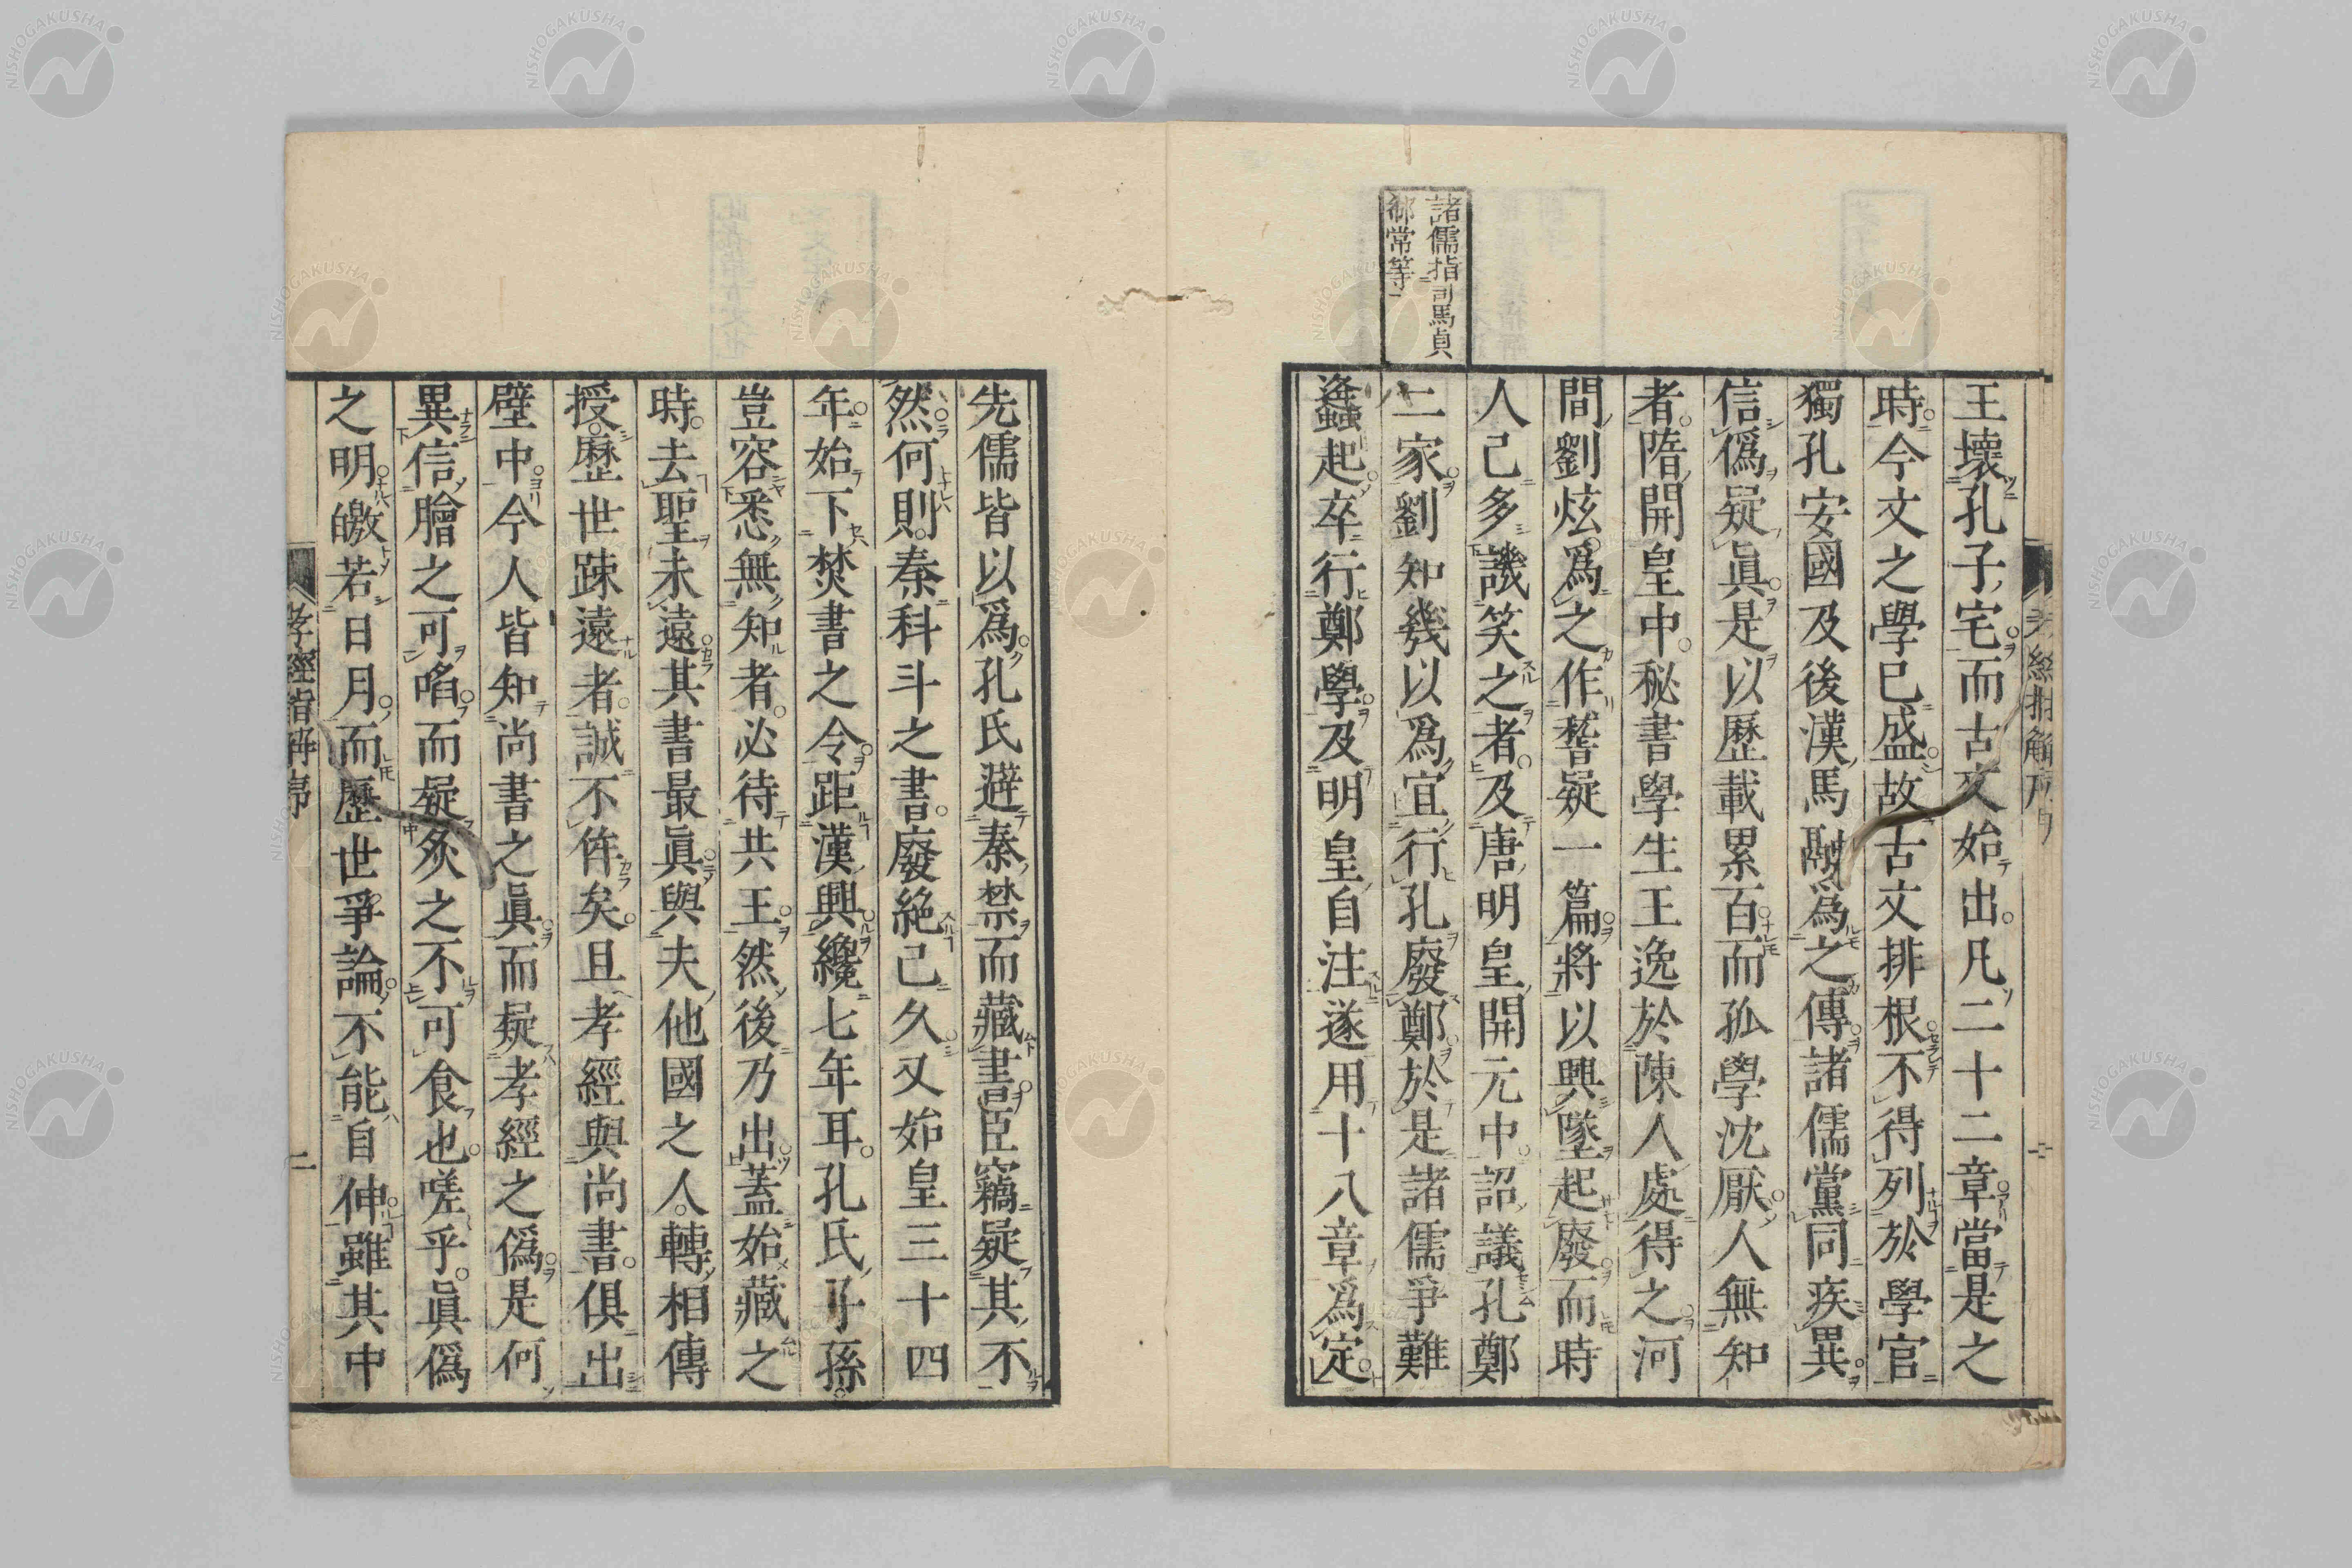 諸儒指司馬貞
郗常等
王壞孔子宅而古文始出凡二十二章當是之
時今文之學已盛故古文排根不得列於學官
獨孔安國及後漢馬融爲之傳諸儒黨同疾異
信僞疑眞是以歷載累百而孤學沈厭人無知
者隋開皇中秘書學生王逸於陳人處得之河
間劉炫爲之作稽疑一篇將以興墜起廢而時
人已多譏笑之者及唐明皇開元中詔議孔鄭
二家劉知幾以爲宜行孔廢鄭於是諸儒爭難
蠭起卒行鄭學及明皇自注遂用十八章爲定
先儒皆以爲孔氏避秦禁而藏書臣竊疑其不
然何則秦科斗之書廢絶已久又始皇三十四
年始下焚書之令距漢興纔七年耳孔氏子孫
豈容悉無知者必待共王然後乃出蓋始藏之
時去聖未遠其書最眞與夫他國之人轉相傳
授歷世踈遠者誠不侔矣且孝經與尚書俱出
壁中今人皆知尚書之眞而疑孝經之僞是何
異信膾之可啗而疑炙之不可食也嗟乎眞僞
之明皦若日月而歷世爭論不能自伸雖其中
孝經指解序
二